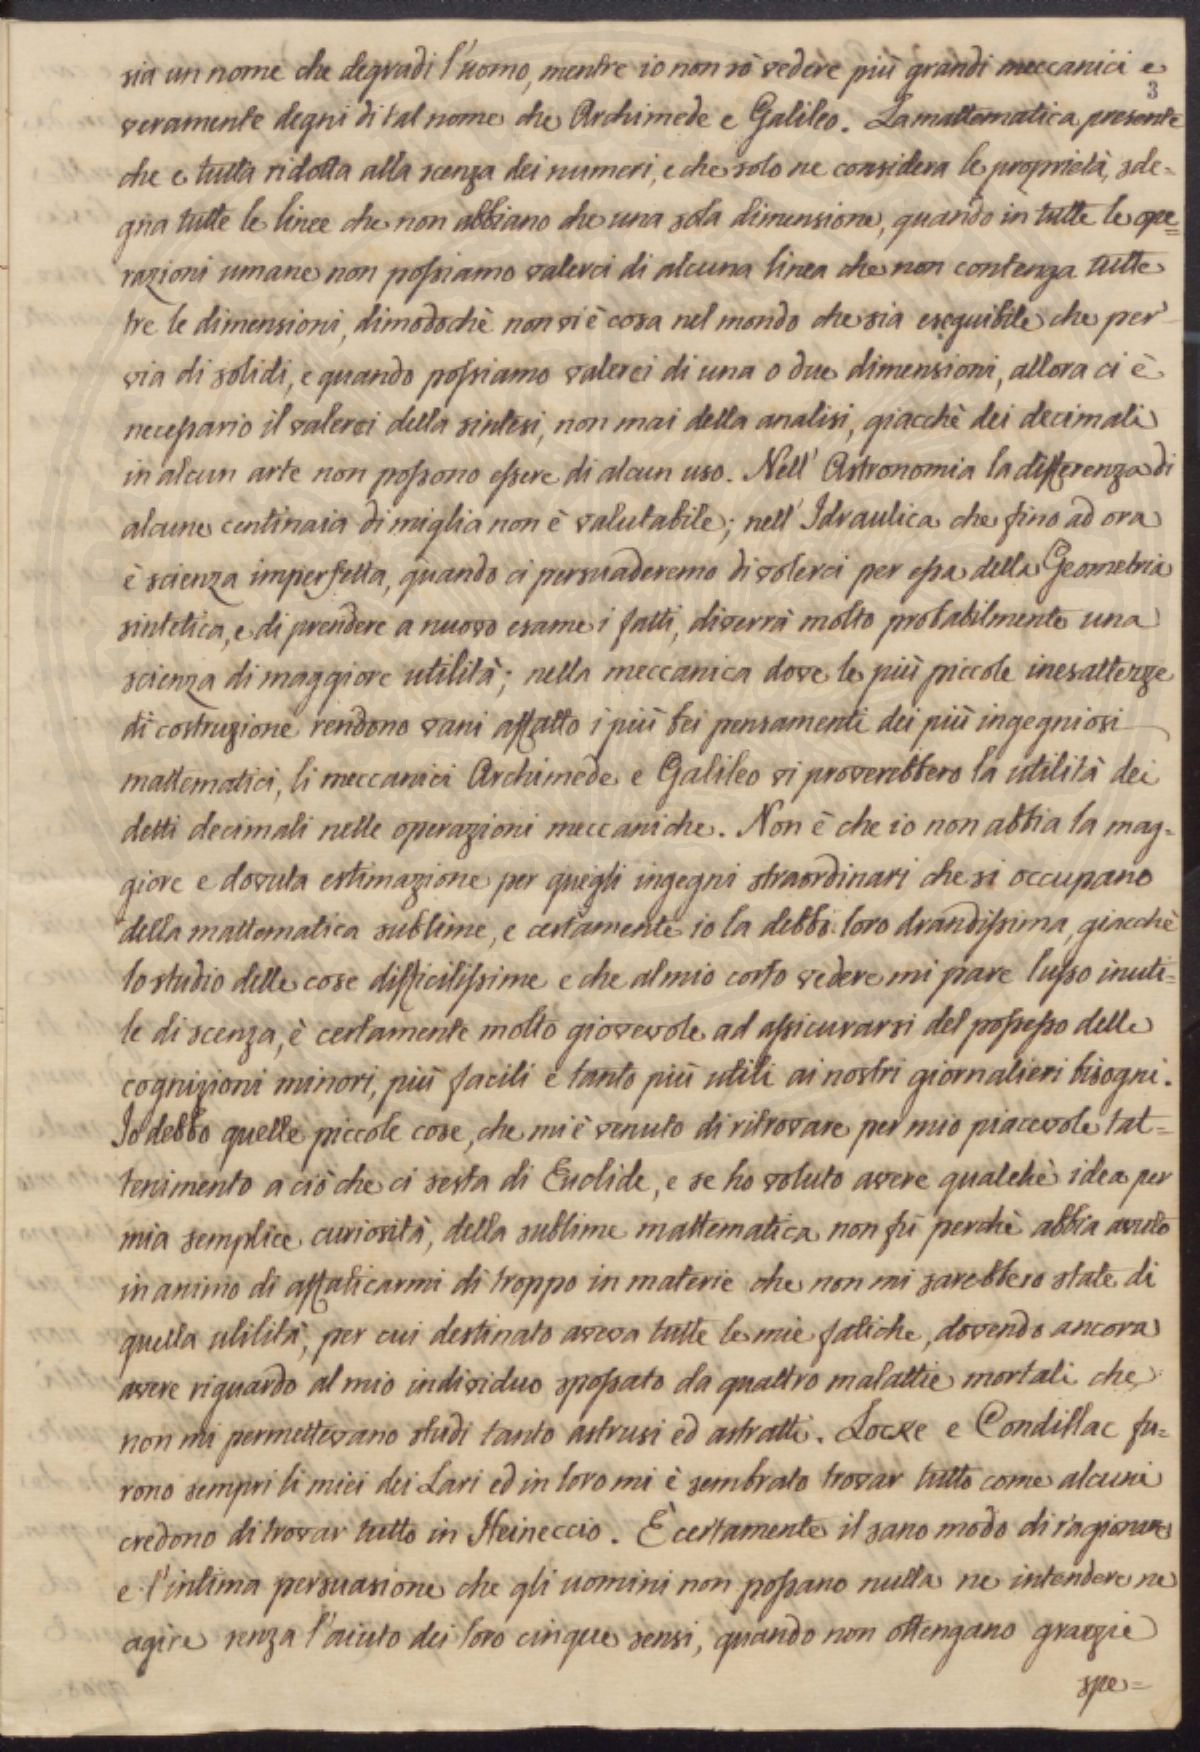 sia un nome che degradi l'uomo, mentre io non sò vedere più grandi meccanici e
3
veramente degni di tal nome che Archimede e Galileo. La mattematica presente
che e tutta ridotta alla scenza dei numeri, e che solo ne considera le proprietà, sde=
gna tutte le linee che non abbiano che una sola dimensione, quando in tutte le ope=
razioni umane non possiamo valerci di alcuna linea che non contenga tutte
tre le dimensioni, dimodochè non vi è cosa nel mondo che sia eseguibile che per
via di solidi, e quando possiamo valerci di una o due dimensioni, allora ci è
necessario il valerci della sintesi, non mai della analisi, giacchè dei decimali
in alcun arte non possono essere di alcun uso. Nell' Astronomia la differenza di
alcune centinaia di miglia non è valutabile; nell' Idraulica che fino ad ora
è scienza imperfetta, quando ci persuaderemo di volerci per essa della Geometria
sintetica, e di prendere a nuovo esame i fatti, diverrà molto probabilmente una
scienza di maggiore utilità; nella meccanica dove le più piccole inesattezze
di costruzione rendono vani affatto i più bei pensamenti dei più ingegniosi
mattematici, li meccanici Archimede e Galileo vi proverebbero la utilità dei
detti decimali nelle operazioni meccaniche. Non è che io non abbia la mag=
giore e dovuta estimazione per quegli ingegni straordinari che si occupano
della mattematica sublime, e certamente io la debbo loro drandissima, giacchè
lo studio delle cose difficilissime e che al mio corto vedere mi pare lusso inuti=
le di scenza, è certamente molto giovevole ad assicurarsi del possesso delle
cognizioni minori, più facili e tanto più utili ai nostri giornalieri bisogni.
Io debbo quelle piccole cose, che mi è venuto di ritrovare per mio piacevole trat=
tenimento a ciò che ci resta di Euclide, e se ho voluto avere qualchè idea per
mia semplice curiosità, della sublime mattematica non fù perchè abbia avuto
in animo di affaticarmi di troppo in materie che non mi sarebbero state di
quella utilità, per cui destinato aveva tutte le mie fatiche, dovendo ancora
avere riguardo al mio individuo spossato da quattro malattie mortali che
non mi permettevano studi tanto astrusi ed astratti. Locke e Condillac fu=
rono sempri li miei dei Lari ed in loro mi è sembrato trovar tutto come alcuni
credono di trovar tutto in Heineccio. È certamente il sano modo di ragionare
e l'intima persuasione che gli uomini non possano nulla ne intendere ne
agire senza l'aiuto dei loro cinque sensi, quando non ottengano grazie
spe=